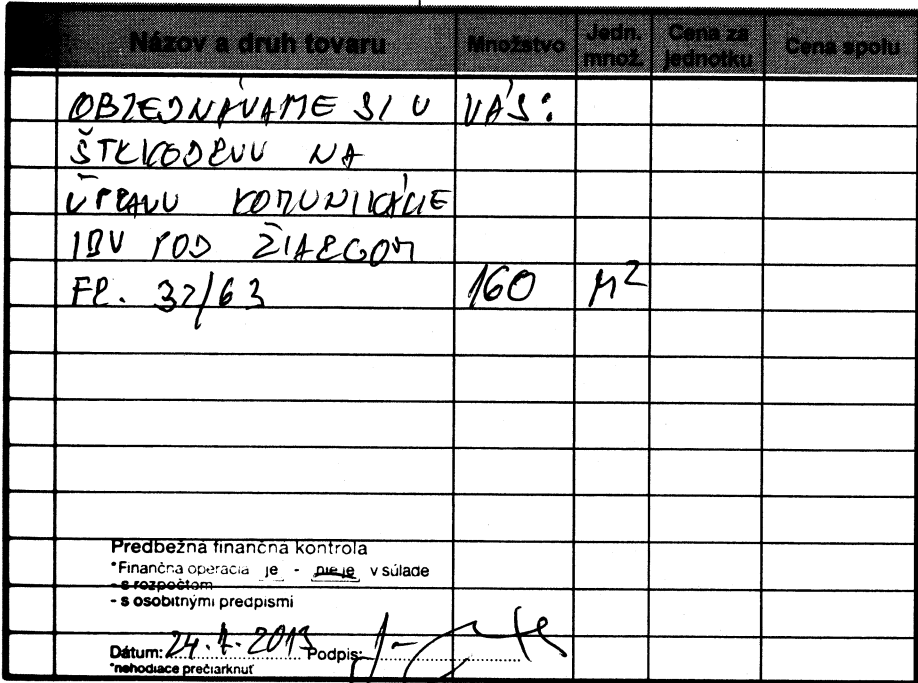 Názov a druh tovaru Množstvo Jedn. množ. Cena za jednotku Cena spolu
OBJEDNÁVAME SI U VÁS:
ŠTRKODRVU NA
ÚPRAVU KOMUNIKÁCIE
IBV POD ŽIARCOM
FR. 32/63 160 M²
Predbežná finančná kontrola
*Finančná operácia je - nie je v súlade
- s rozpočtom
- s osobitnými predpismi
Dátum: 24. 7. 2013 Podpis:
*nehodiace prečiarknuť